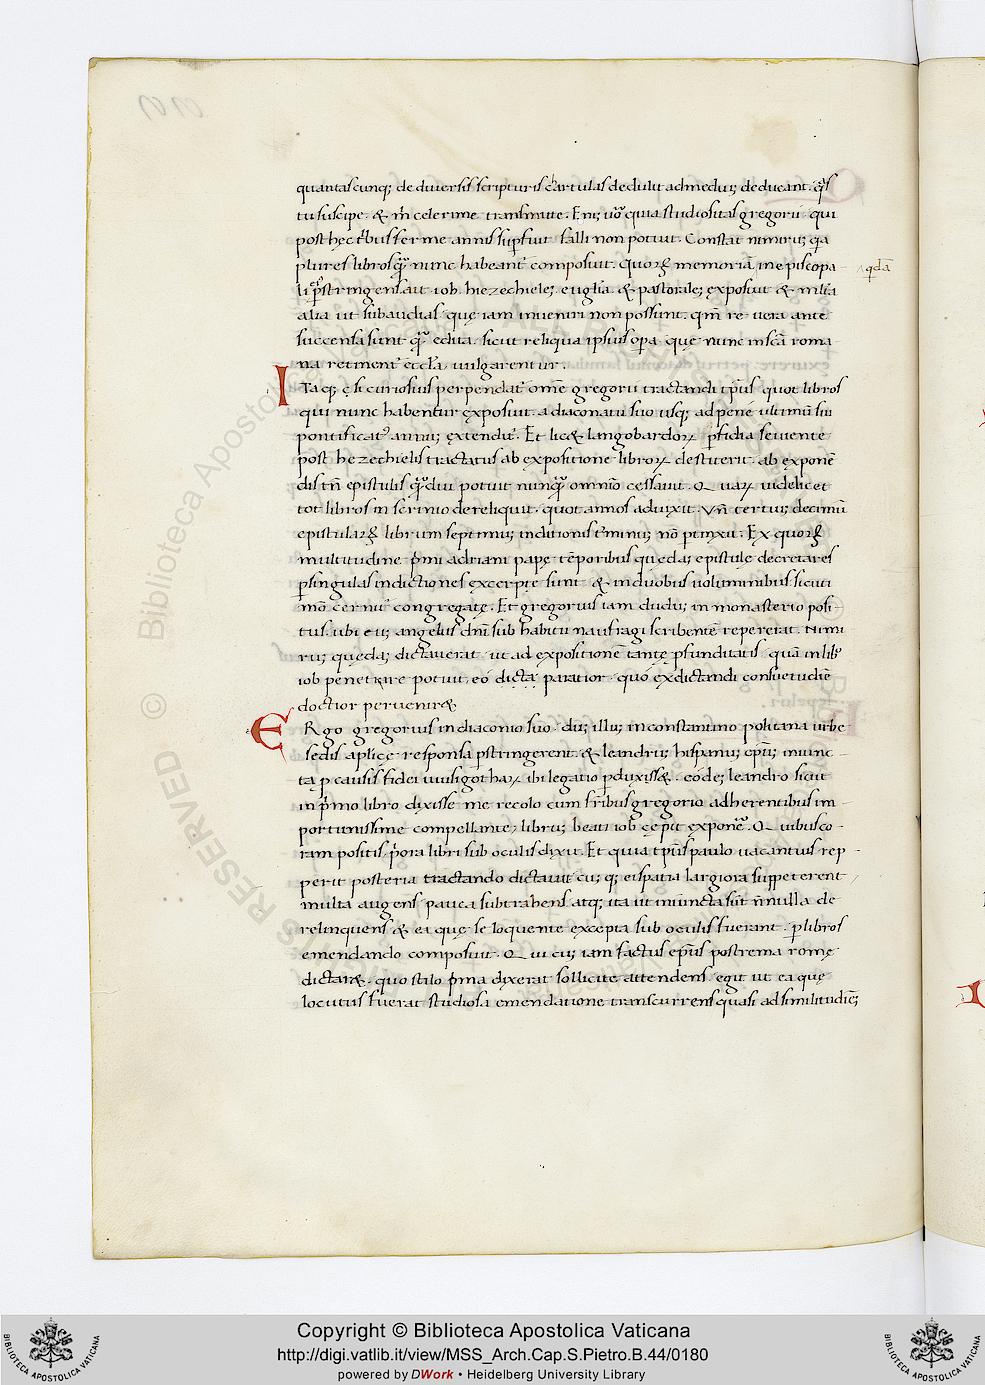 quantascunq; de diuersis scripturis cartulas dedulit ad medium deducant. q̃s
tu suscipe. & m̃ celerime transmitte. Enim uõ quia studiositas gregorii qui
post hęc tribus ferme annis supfuit falli non potuit. Constat nimirum qa
plures libros quã nunc habeant composuit. quoꝝ memoriã in epi scopa-
li p̃stringens ait iob. hiezechielem. euglia. & pastorale; exposuit & multa
alia ut subaudias quę iam inueniri non possunt. qm̃ re uera ante
succensa sunt quã edita. sicut reliqua ipsius opa. quę nunc in scã roma
na retinent' eccla. uulgarentur.
ITaq; ẽ si curiosius perpendat' om̃e gregorii tractandi tp̃us quot libros
qui nunc habentur exposuit. a diaconatu suo usq; ad pene ultimũ sui
pontificat' annum extendit'. Et lic& langobardoꝝ pfidia seuiente
post hezechielis tractatus ab expositione libroꝝ destiterit. ab exponẽ
dis tñ epistulis quãdiu potuit nunquã omnino cessauit. Quaꝝ uidelicet
tot libros in scrinio dereliquit. quot annos aduixit. Vñ tertium decimũ
epistulaꝝ librum septimum inditionis t'minum nõ ptinxit. Ex quoꝝ
multitudine p̃mi adriani papę tẽporibus quedam epistulę decretales
p singulas indictiones excerptę sunt & in duobus uoluminibus sicuti
mõ cernunt' congregatę. Et gregorius iam dudum in monasterio posi-
tus. ubi eum angelus dñi sub habitu naufragi scribentẽ repererat. Nimi
rum quędam dictauerat. ut ad expositionẽ tantę pfunditatis quã in lib'
iob penetrare potuit. eo dictã paratior. quo ex dictandi consuetudine
doctior perueniret.
ERgo gregorius in diaconio suo. dum illum in constantino politana urbe
sedis aplicę responsa pstringerent. & leandrum hispanum ep̃m iniunc-
ta p causis fidei uuisigothaꝝ ibi legatio pduxiss&. eode; leandro sicut
in p̃mo libro dixisse me recolo cum fr̃ibus gregorio adherentibus im-
portunissime compellante. librum beati iob cępit exponẽ. Quibus co-
ram positis p̃ora libri sub oculis dixit. Et quia tp̃us paulo uacantius rep-
perit posteria tractando dictauit cumq; ei spatia largiora suppeterent
multa augens pauca subtrahens atq; ita ut inuincta sũt ñnulla de
relinquens & ea quę se loquente excepta sub oculis fuerant. p libros
emendando composuit. Qui cum iam factus ep̃us postrema romę
dictar&. quo stilo p̃ma dixerat sollicite attendens. egit ut ea quę
locutus fuerat studiosa emendatione transcurrens quasi ad similitudinẽ;
qdã
© Biblioteca Apostolica Vaticana
ALL RIGHTS RESERVED
Copyright © Biblioteca Apostolica Vaticana
http://digi.vatlib.it/view/MSS_Arch.Cap.S.Pietro.B.44/0180
powered by DWork • Heidelberg University Library
BIBLIOTECA APOSTOLICA VATICANA
BIBLIOTECA APOSTOLICA VATICANA